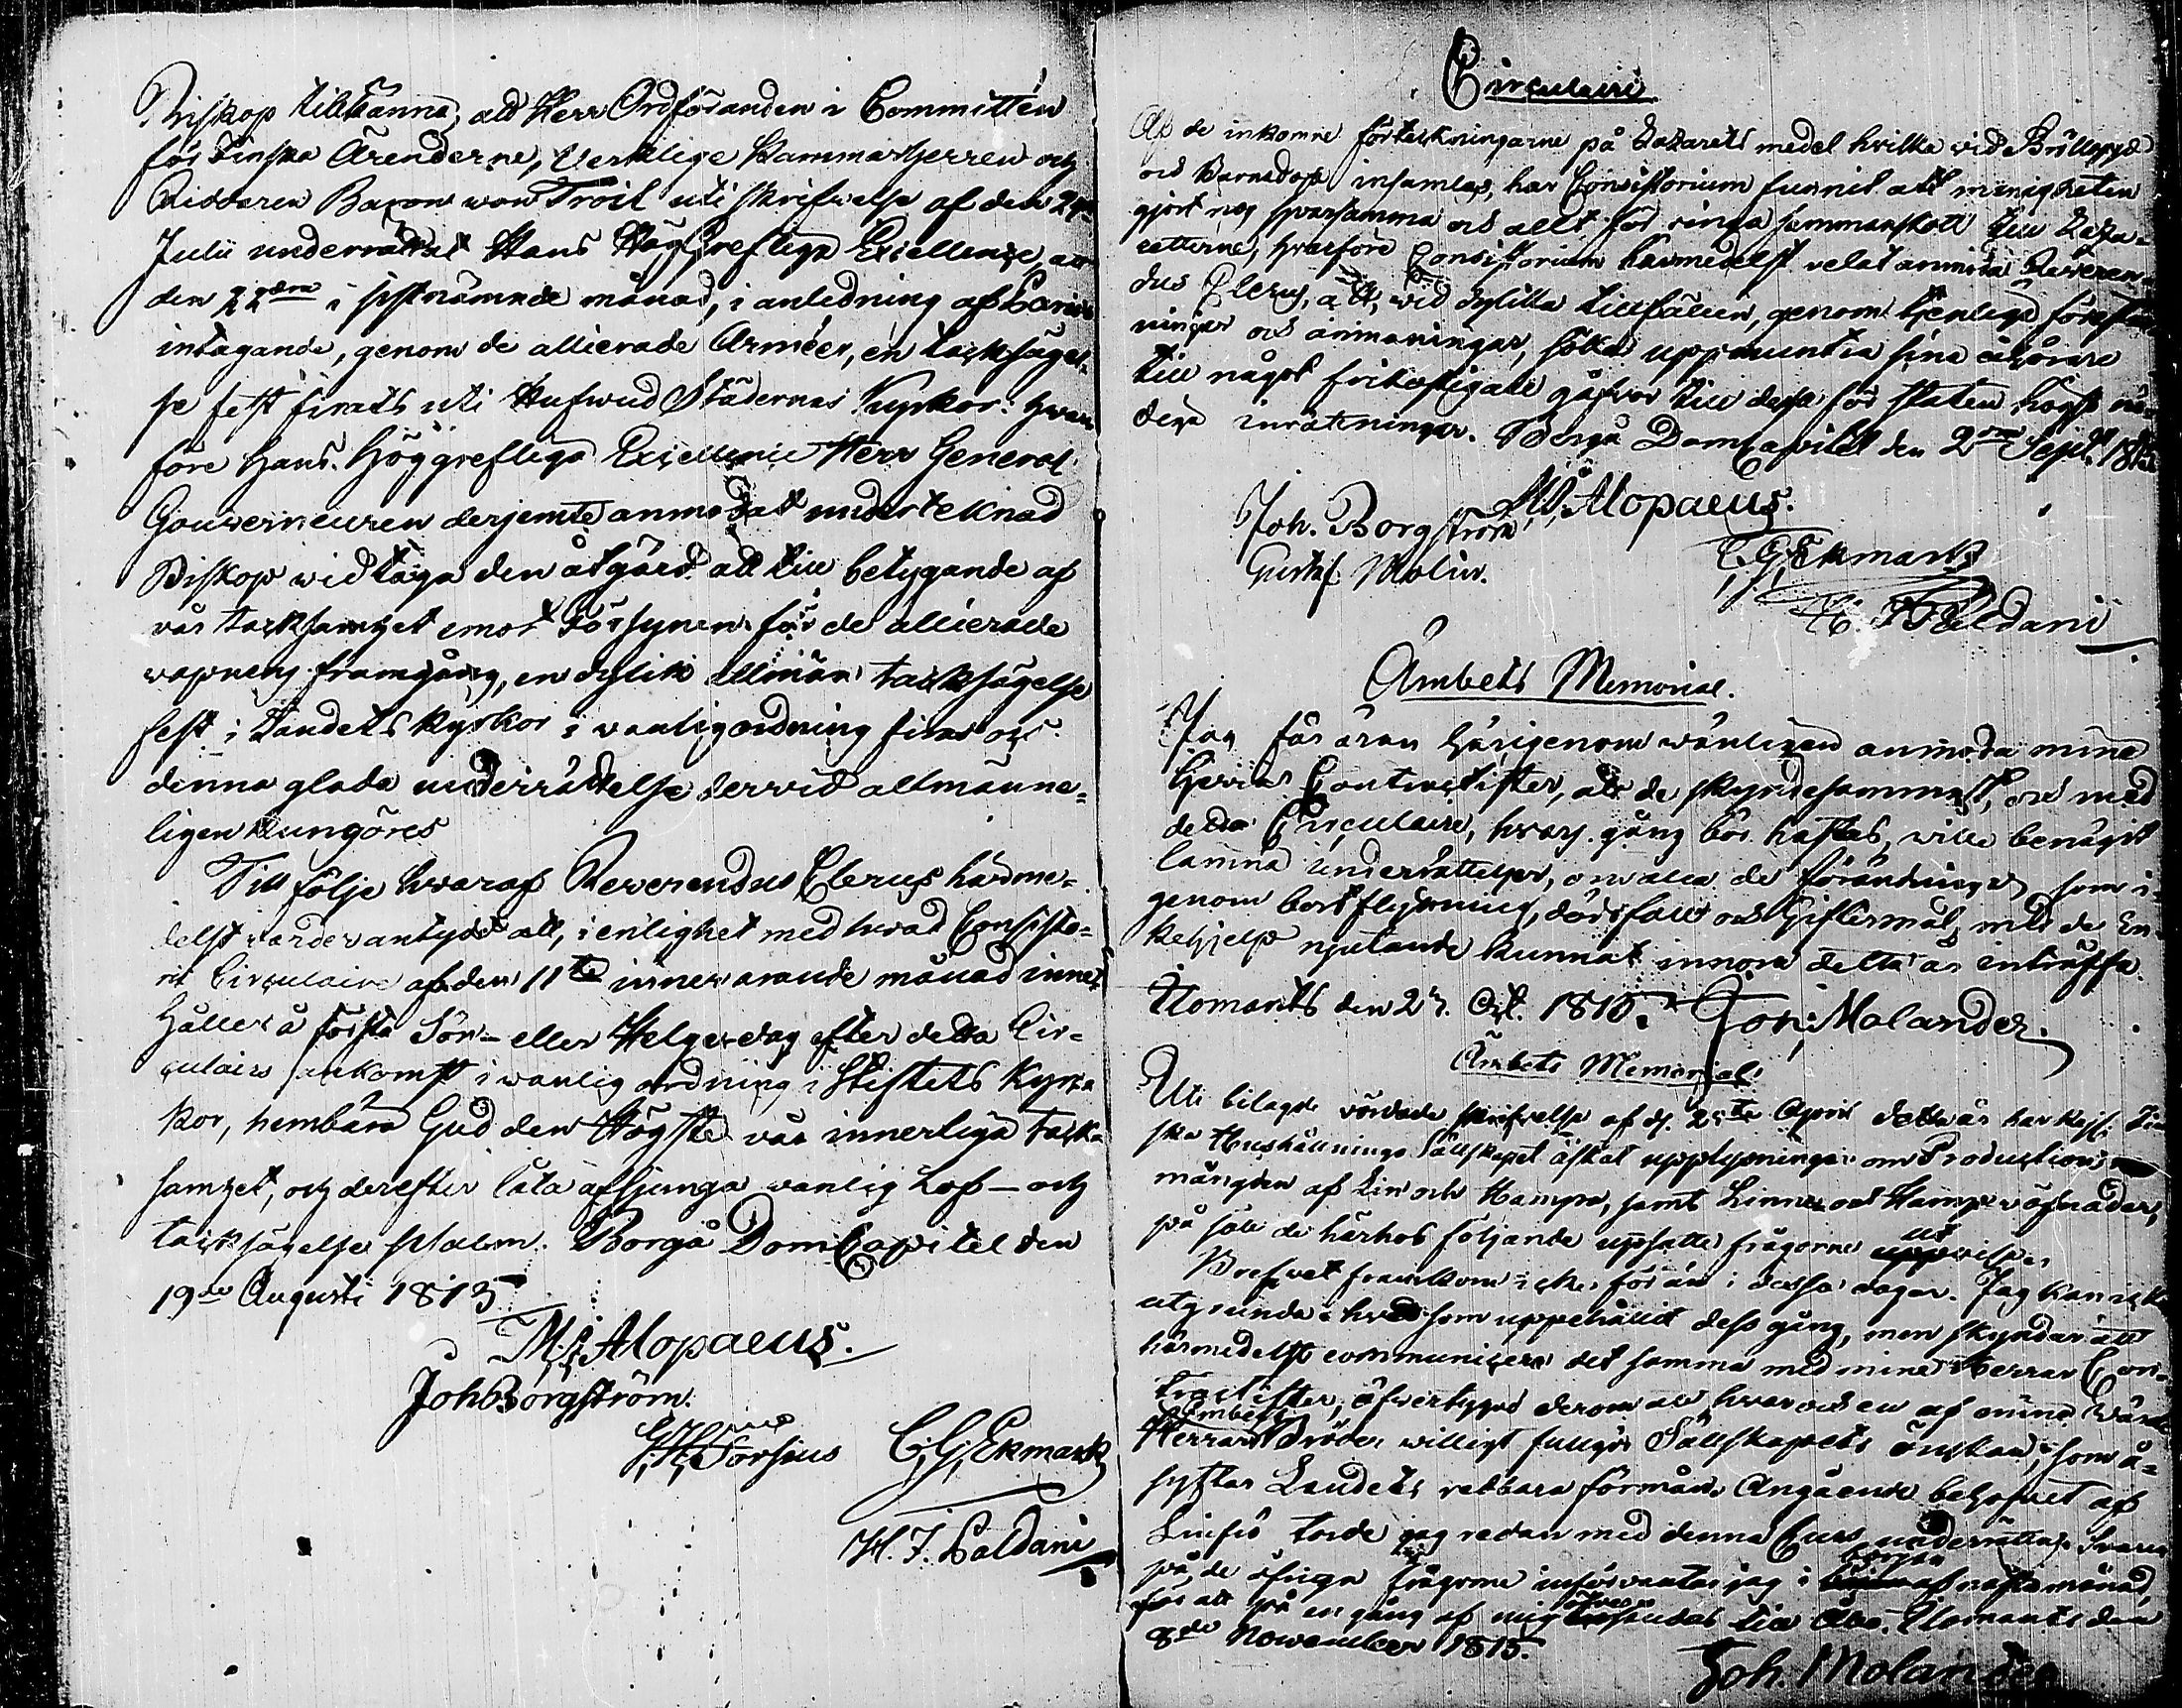 Biskop tillkänna, att Herr Ordföranden i Committén
för Finska Ärenderne, Verklige Kammarherren och
Riddaren Baron von Troil uti skrifvelse af den
Julii underrättat Hans Höggrefliga Excellence, att
den 22dra i sistnämnde månad, i anledning af Paris
intagande, genom de allierade Arméer, en tacksägel-
se fest firats uti Hufwud Städernas Kyrkor: hvar
före Hans Höggrefliga Excellence Herr General
Gouverneuren derjemte anmodat undertecknad
Biskop widtaga den åtgärd att till betygande af
vår tacksamhet emot Försynen för de allierade
wapnens framgång, en dylik allmän tacksägelse
fest i Landets kyrkor i vanlig ordning firas och
denna glada underrättelse dervid allmänne-
ligen kungöres
Till följe hvaraf Reverendus Clerus härme-
delst varder antydt att, i enlighet med hvad Consisto-
rii Circulaire af den 11te innevarande månad inne-
håller å första Sön- eller Helgedag efter detta Cir-
culairs ankomst i vanlig ordning i Stiftets Kyr-
kor, hembära Gud den Högste vår innerliga tack-
samhet, och derefter låta afsjunga vanlig Lof- och
tacksägelse psalm. Borgå DomCapitel den
19de Augusti 1815
M. Alopaeus.
Joh Borgström.
G. H. Forsius C. G. Ekmark
H. J. Paldani
Circulaire
Af de inkomne förteckningarne på Lazarets medel hvilka vid Bröllop
och Barndop insamlas, har Consistorium funnit att menigheten
gjort nog sparsamma och allt för ringa sammanskott till Laza-
retterne, hvarföre Consistorium härmedelst velat anmoda Reveren-
dus Clerus, att, vid dylika tillfällen, genom tjenliga föreställ
ningar och anmaningar, söka uppmuntra sina åhörare
till något frikostigare gåfvor till dessa för staten högst nö-
diga inrättningar. Borgå DomCapitel den 2dra Sept. 1815
M. Alopaeus.
Joh. Borgström
Gustaf Molin. C. G. Ekmark
H. J. Paldani
Ämbets Memorial.
Jag får äran härigenom wänligen anmoda mine
Herrar Contractister, att de skyndesammast, och med
detta Circulaire, hvars gång bör hastas, wille benäget
lämna underrättelser, om alla de förändringar, som i-
genom bortflyttning, dödsfall och Giftermål, med de En-
kehjelp njutande kunnat innom detta år inträffa.
Ilomants den 27. Oct. 1815. Joh. Molander.
Ämbets Memorial
Uti bilagde vördade skrifvelse af d. April detta år har Kejs. Fin
ska Hushållnings Sällskapet äskat upplysningar om Productions
mängden af Lin och Hampa, samt Linne och Hampwäfnader,
på sätt de härhos följande upsatte frågorne utvisa.
Brefvet framkom icke förr än i dessa dagar. Jag kan icke
utgrunda hvad som uppehållit dess gång, men skyndar att
härmedelst communicera det samma med mine Herrar Con-
tractister, öfvertygad derom att hvar och en af mine Värde
Herrar Embets Bröder willigt fullgör Sällskapets önskan, som å-
syftar Landets redbara förmån. Angående behofvet af
Linfrö torde jag redan med denna Curs underrättas. Svaren
på de öfriga frågorne införväntar jag i början af nästa månad,
för att på en gång af mig öfversändas till Åbo. Ilomants den
8de November 1815.
Joh. Molander